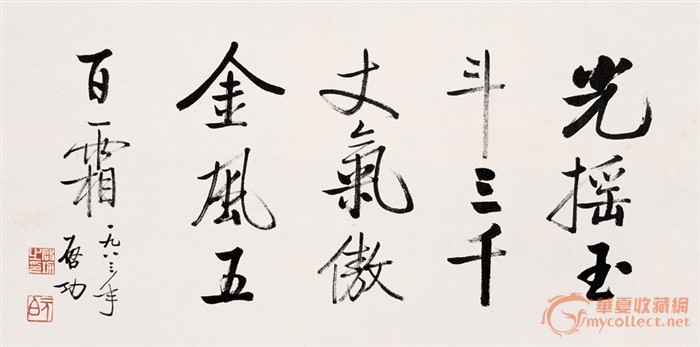 光摇玉
斗三千
丈氣傲
金風五
百霜
一九八三年
啓功
華夏收藏網
mycollect.net